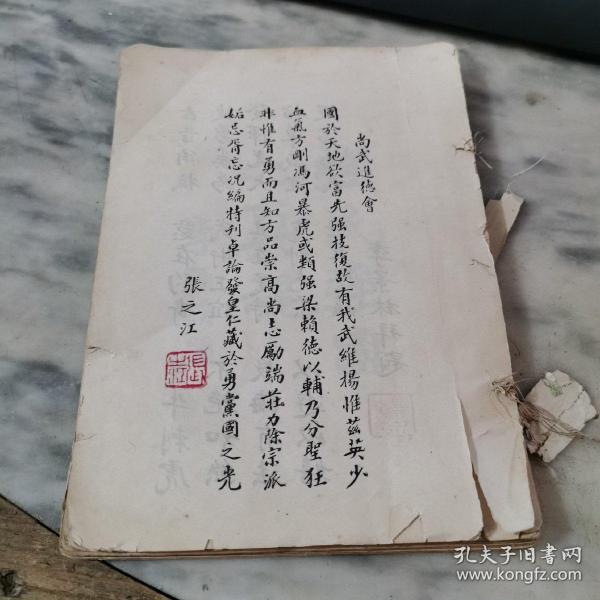 尚武進德會
國於天地欲富先强技復故有我武維揚惟茲英少
血氣方剛馮河暴虎或類强梁賴德以輔乃分聖狂
非惟有勇而且知方品崇高尚志勵端莊力除宗派
妬忌胥忘況編特刊卓論發皇仁藏於勇黨國之光
張之江
孔夫子旧书网
www.kongfz.com